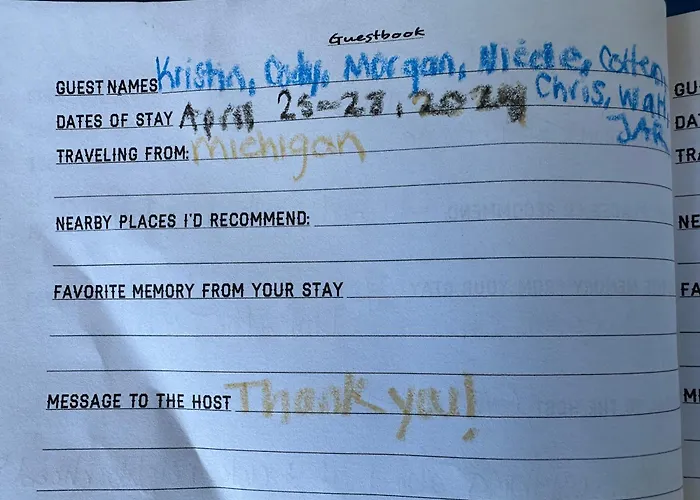 Guestbook
GUEST NAMES Kristin, Cody, Morgan, Nicole,
Chris,
DATES OF STAY April 25-28, 2024
JAR
TRAVELING FROM: Michigan
NEARBY PLACES I'D RECOMMEND:
FAVORITE MEMORY FROM YOUR STAY
MESSAGE TO THE HOST Thank you!
GU
DA
TR
NE
FA